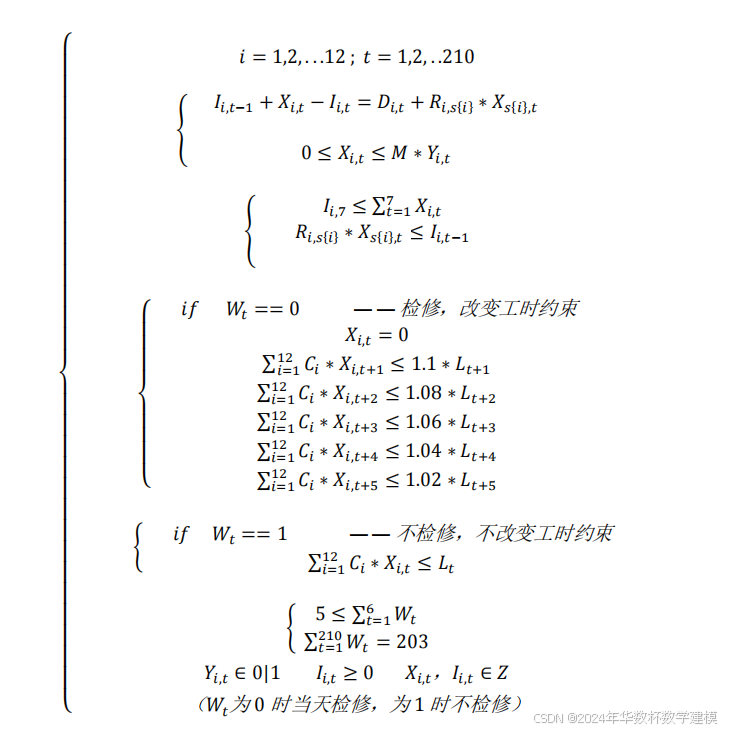 i = 1,2,...12 ; t = 1,2,..210
I_{i,t−1} + X_{i,t} − I_{i,t} = D_{i,t} + R_{i,s{i}} * X_{s{i},t}
0 ≤ X_{i,t} ≤ M * Y_{i,t}
I_{i,7} ≤ ∑_{t=1}^{7} X_{i,t}
R_{i,s{i}} * X_{s{i},t} ≤ I_{i,t−1}
if W_t == 0 ——检修，改变工时约束
X_{i,t} = 0
∑_{i=1}^{12} C_i * X_{i,t+1} ≤ 1.1 * L_{t+1}
∑_{i=1}^{12} C_i * X_{i,t+2} ≤ 1.08 * L_{t+2}
∑_{i=1}^{12} C_i * X_{i,t+3} ≤ 1.06 * L_{t+3}
∑_{i=1}^{12} C_i * X_{i,t+4} ≤ 1.04 * L_{t+4}
∑_{i=1}^{12} C_i * X_{i,t+5} ≤ 1.02 * L_{t+5}
if W_t == 1 ——不检修，不改变工时约束
∑_{i=1}^{12} C_i * X_{i,t} ≤ L_t
5 ≤ ∑_{t=1}^{6} W_t
∑_{t=1}^{210} W_t = 203
Y_{i,t} ∈ 0|1 I_{i,t} ≥ 0 X_{i,t}，I_{i,t} ∈ Z
（W_t为 0 时当天检修，为 1 时不检修）
CSDN @2024年华数杯数学建模